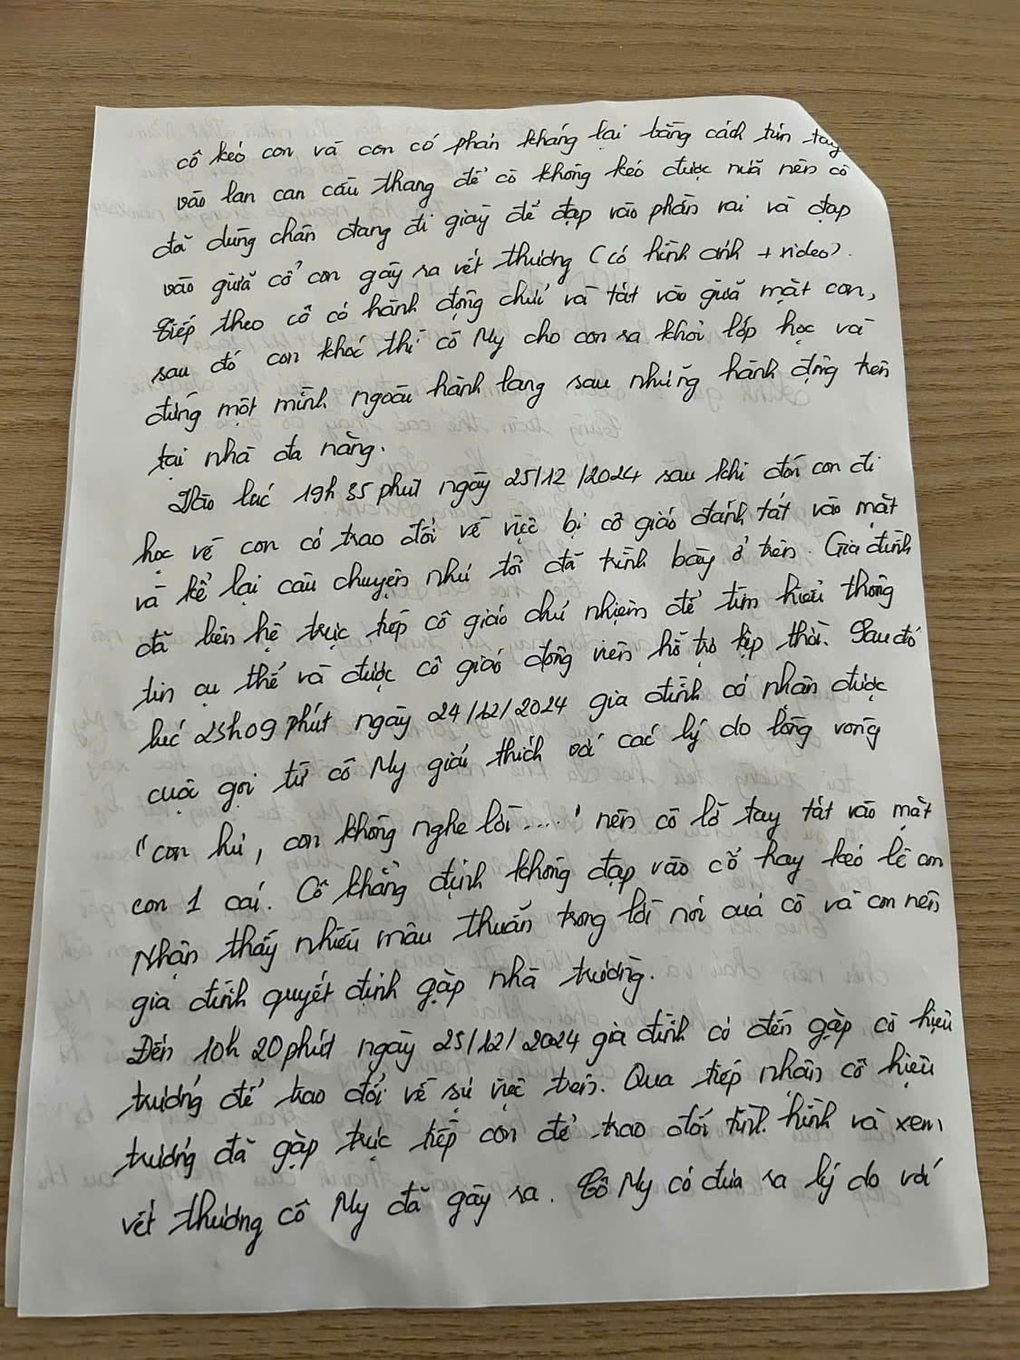 cô kéo con và con có phản kháng lại bằng cách túm tay
vào lan can cầu thang để cô không kéo được nữa nên cô
đã dùng chân đang đi giày để đạp vào phần vai và đạp
vào giữa cổ con gây ra vết thương (có hình ảnh + video).
Tiếp theo cô có hành động chửi và tát vào giữa mặt con,
sau đó con khóc thì cô My cho con ra khỏi lớp học và
đứng một mình ngoài hành lang sau những hành động trên
tại nhà đa năng.
Vào lúc 19h 35 phút ngày 25/12/2024 sau khi đón con đi
học về con có trao đổi về việc bị cô giáo đánh tát vào mặt
và kể lại câu chuyện như tôi đã trình bày ở trên. Gia đình
đã liên hệ trực tiếp cô giáo chủ nhiệm để tìm hiểu thông
tin cụ thể và được cô giáo động viên hỗ trợ kịp thời. Sau đó
lúc 23h09 phút ngày 24/12/2024 gia đình có nhận được
cuộc gọi từ cô My giải thích với các lý do lòng vòng
"con hư, con không nghe lời ....." nên cô lỡ tay tát vào mặt
con 1 cái. Cô khẳng định không đạp vào cổ hay kéo lê con
Nhận thấy nhiều mâu thuẫn trong lời nói của cô và con nên
gia đình quyết định gặp nhà trường.
Đến 10h 20 phút ngày 25/12/2024 gia đình có đến gặp cô hiệu
trưởng để trao đổi về sự việc trên. Qua tiếp nhận cô hiệu
trưởng đã gặp trực tiếp con để trao đổi tình hình và xem
vết thương cô My đã gây ra. Cô My có đưa ra lý do với